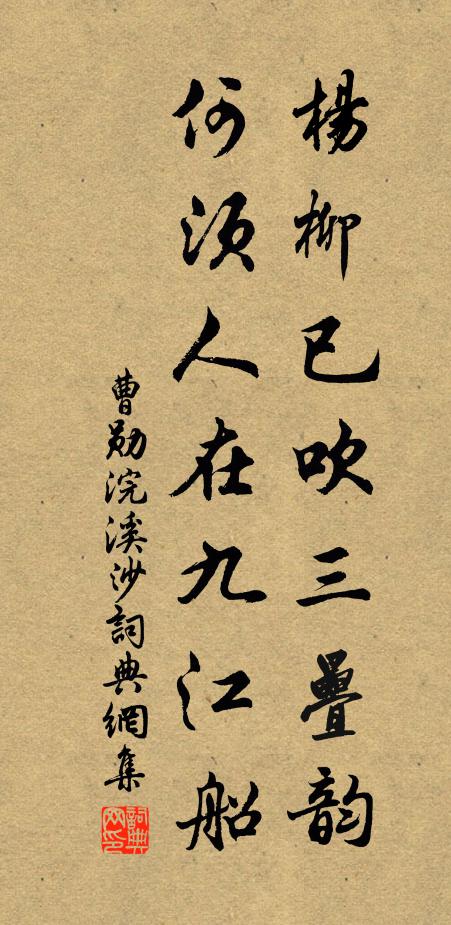 楊柳已吹三疊韵
何須人在九江船
曹勛浣溪沙詞典網集
詞典网印